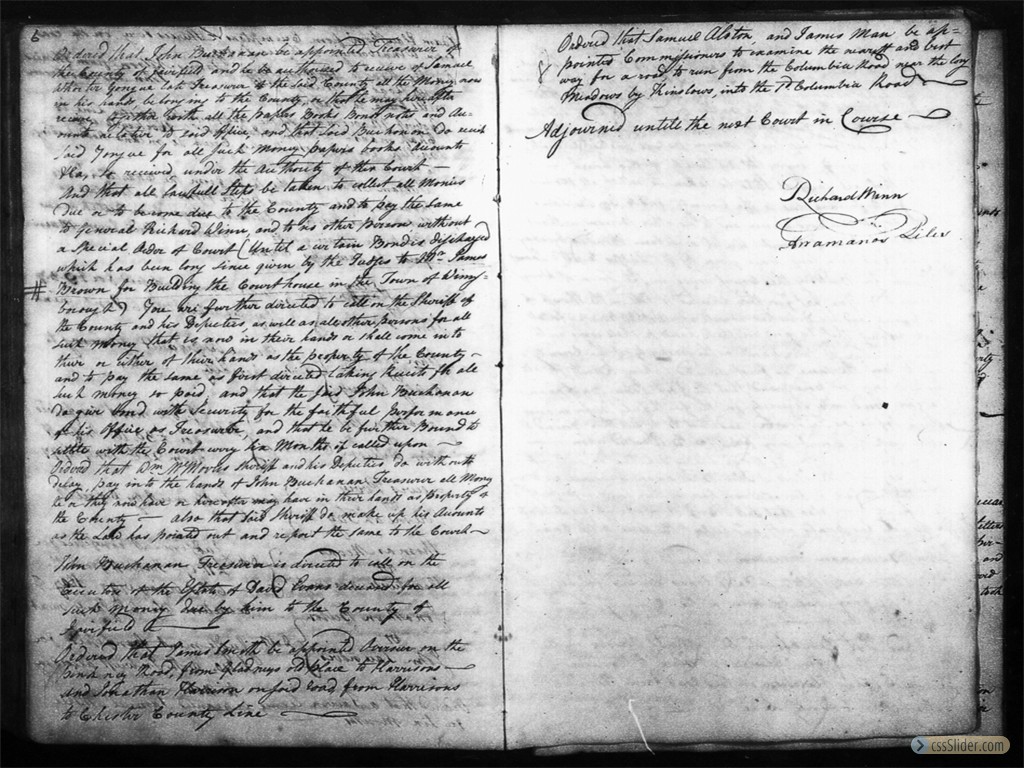 6
Ordered that John Buchanan be appointed Treasurer of
the County of Fairfield and he be authorised to receive of Samuel
Wheeler Yongue late Treasurer of the said County all the Money now
in his hands belonging to the County, or that he may hereafter
receive together with all the Papers Books Bonds notes and Ac-
counts relative to said Office, and that said Buchanan Do receit
said Yongue for all such Money papers books Accounts
&c, so received, under the Authority of this Court
And that all lawfull Steps be taken to collect all Monies
due or to become due to the County and to pay the same
to General Richard Winn, and to no other Person without
a Special Order of Court (Until a certain Bond is discharged
which has been long since given by the Judges to James
Brown for Building the Courthouse in the Town of Winns-
borough) You are further directed to call on the Sheriff of
the County and his Deputies, as well as all other persons for all
such money that is now in their hands or shall come in to
their or either of their hands as the property of the County -
and to pay the same as first directed taking Receits for all
such money so paid, and that the said John Buchanan
do give bond with Security for the faithful performance
of his Office as Treasurer, and that he be further Bound to
settle with the Court every six Months if called upon
Ordered that Sheriff and his Deputies do without
delay, pay into the hands of John Buchanan Treasurer all Money
he or they now have or hereafter may have in their hands as property of
the County - also that said Sheriff do make up his Accounts
as the Law has pointed out and report the same to the Court
John Buchanan Treasurer is directed to call on the
Executors of the Estate of David Evans deceased for all
such Money due by him to the County of
Fairfield
Ordered that James be appointed Overseer on the
Road, from old place to Harrisons
And Johnathan Harrison on said road from Harrisons
to Chester County Line
Ordered that Samuel Alston and James Man be ap-
pointed Commissioners to examine the nearest and best
way for a road to run from the Columbia Road near the long
Meadows by Kinslows, into the Columbia Road
Adjourned untill the next Court in Course
Richard Winn
Arramanos Liles
cssSlider.com